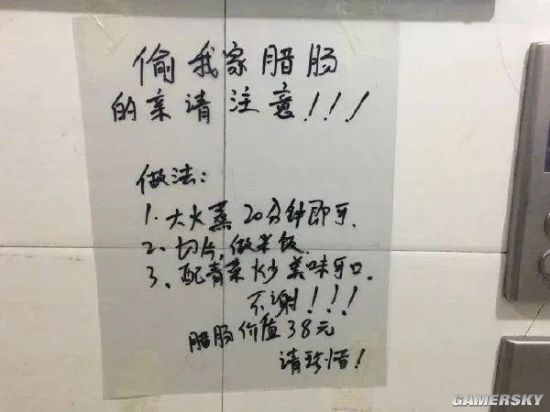 偷我家腊肠
的亲请注意!!!
做法:
1. 大火蒸20分钟即可.
2. 切片,做米饭.
3. 配青菜炒美味可口.
不谢!!!
腊肠价值38元
请珍惜!
GAMERSKY